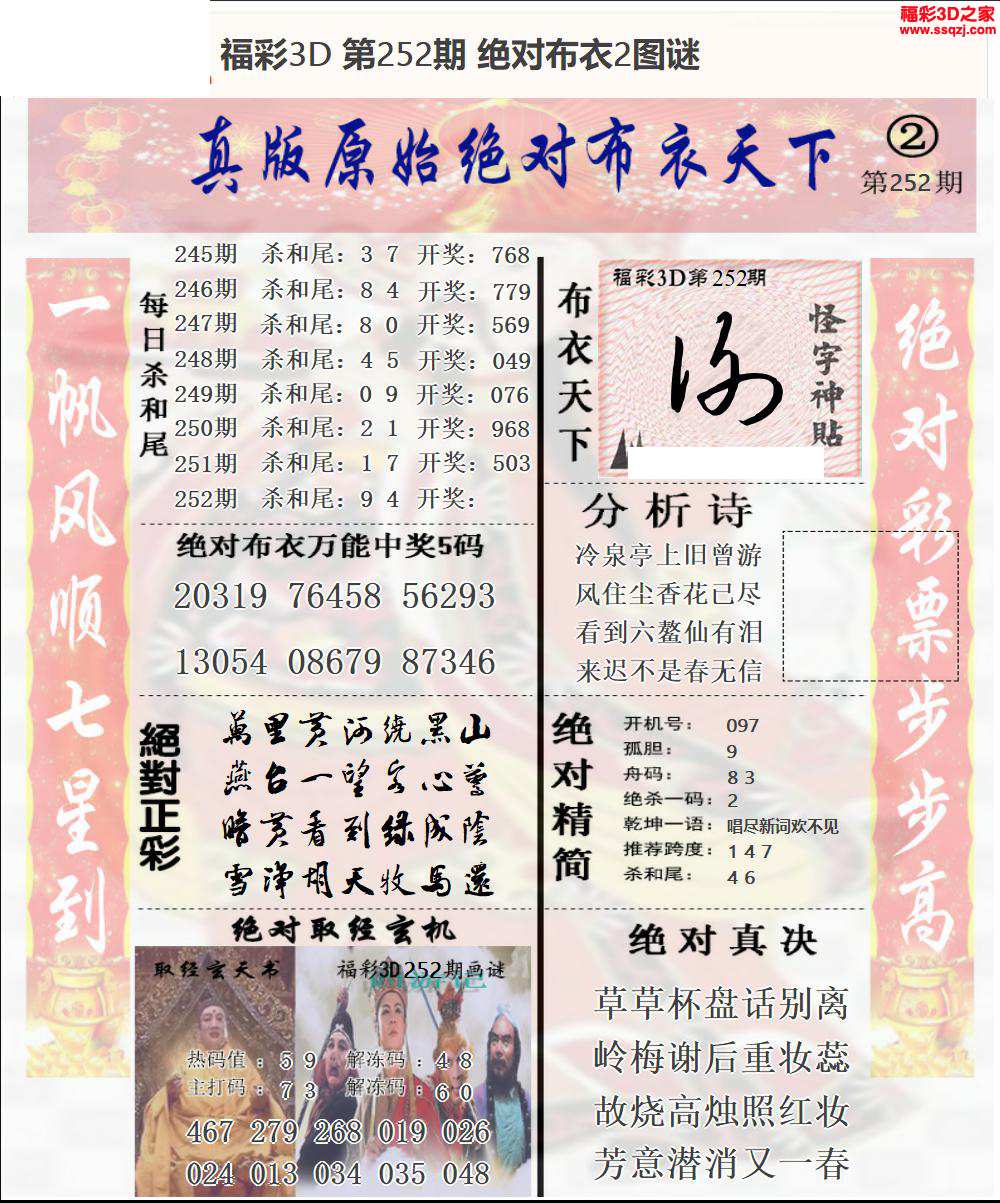 福彩3D之家
www.ssqzj.com
福彩3D 第252期 绝对布衣2图谜
真版原始绝对布衣天下
②
第252期
一帆风顺七星到
每日杀和尾
245期 杀和尾：3 7 开奖：768
246期 杀和尾：8 4 开奖：779
247期 杀和尾：8 0 开奖：569
248期 杀和尾：4 5 开奖：049
249期 杀和尾：0 9 开奖：076
250期 杀和尾：2 1 开奖：968
251期 杀和尾：1 7 开奖：503
252期 杀和尾：9 4 开奖：
绝对布衣万能中奖5码
20319 76458 56293
13054 08679 87346
絕對正彩
萬里黄河繞黑山
燕台一望客心驚
暗黄看到绿成陰
雪淨胡天牧馬還
绝对取经玄机
取经玄天书
福彩3D252期画谜
热码值：5 9 解冻码：4 8
主打码：7 3 解冻码：6 0
467 279 268 019 026
024 013 034 035 048
布衣天下
福彩3D第252期
怪字神貼
分析诗
冷泉亭上旧曾游
风住尘香花己尽
看到六鳌仙有泪
来迟不是春无信
绝对精简
开机号： 097
孤胆： 9
舟码： 8 3
绝杀一码：2
乾坤一语：唱尽新词欢不见
推荐跨度：1 4 7
杀和尾： 4 6
绝对真决
草草杯盘话别离
岭梅谢后重妆蕊
故烧高烛照红妆
芳意潜消又一春
绝对彩票步步高